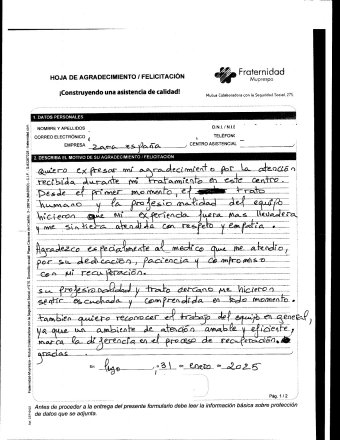 HOJA DE AGRADECIMIENTO / FELICITACIÓN
¡Construyendo una asistencia de calidad!
Fraternidad
Muprespa
Mutua Colaboradora con la Seguridad Social, 275
1. DATOS PERSONALES
NOMBRE Y APELLIDOS
D.N.I. / N.I.E.
CORREO ELECTRÓNICO
TELÉFONO
EMPRESA Zara españa
CENTRO ASISTENCIAL
2. DESCRIBA EL MOTIVO DE SU AGRADECIMIENTO / FELICITACION
quiero expresar mi agradecimiento por la atención
recibida durante mi tratamiento en este centro.
Desde el primer momento el trato
humano y la profesionalidad del equipo
hicieron que mi experiencia fuera mas llevadera
y me sintiera atendida con respeto y empatia.
Agradezco especialmente al medico que me atendio,
por su dedicación, paciencia y compromiso
con mi recuperación.
su profesionalidad y trato cercano me hicieron
sentir escuchada y comprendida en todo momento.
tambien quiero reconocer el trabajo del equipo en general,
ya que un ambiente de atención amable y eficiente,
marca la diferencia en el proceso de recuperación.
gracias
En lugo, 31 - enero - 2025
Pág. 1 / 2
Antes de proceder a la entrega del presente formulario debe leer la información básica sobre protección
de datos que se adjunta.